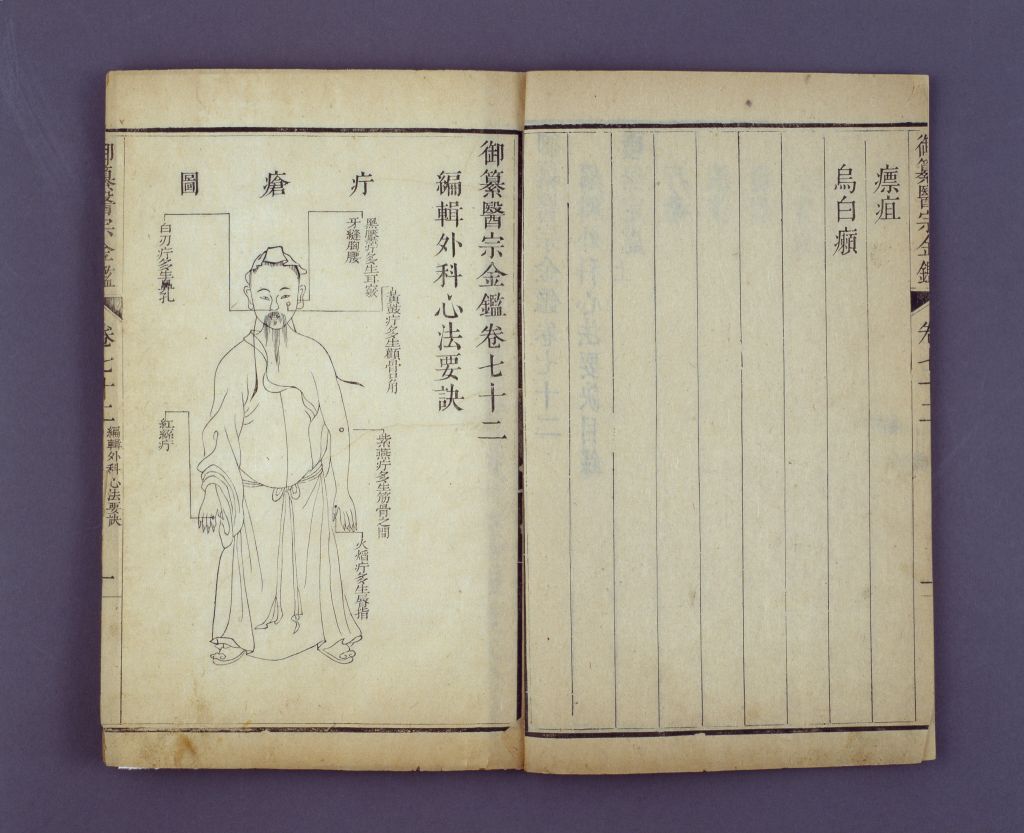 御纂醫宗金鑑
卷七十二
一
瘭疽
烏白癩
御纂醫宗金鑑卷七十二
編輯外科心法要訣
疔瘡圖
黑靨疔多生耳竅
牙縫胸腰
黃鼓疔多生顴骨口角
紫燕疔多生筋骨之間
火焰疔多生唇指
白刃疔多生鼻孔
紅絲疔
御纂醫宗金鑑
卷七十二
編輯外科心法要訣
一